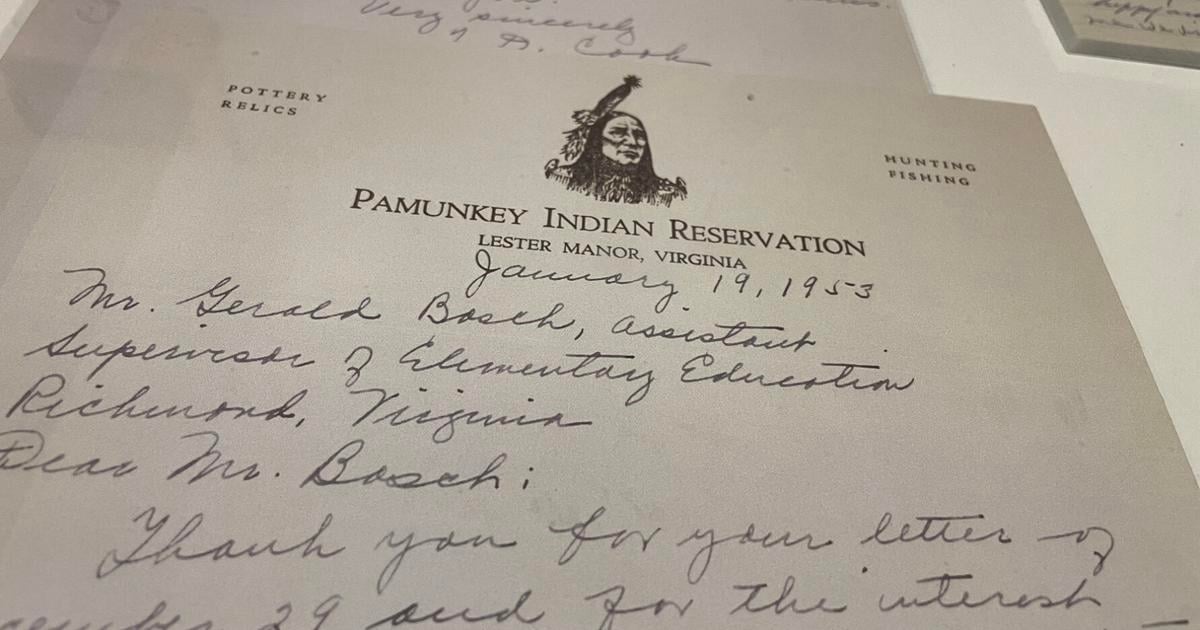 Very sincerely
D. Cook
POTTERY
RELICS
HUNTING
FISHING
PAMUNKEY INDIAN RESERVATION
LESTER MANOR, VIRGINIA
January 19, 1953
Mr. Gerald Bosch, Assistant
Supervisor of Elementary Education
Richmond, Virginia
Dear Mr. Bosch:
Thank you for your letter of
29 and for the interest